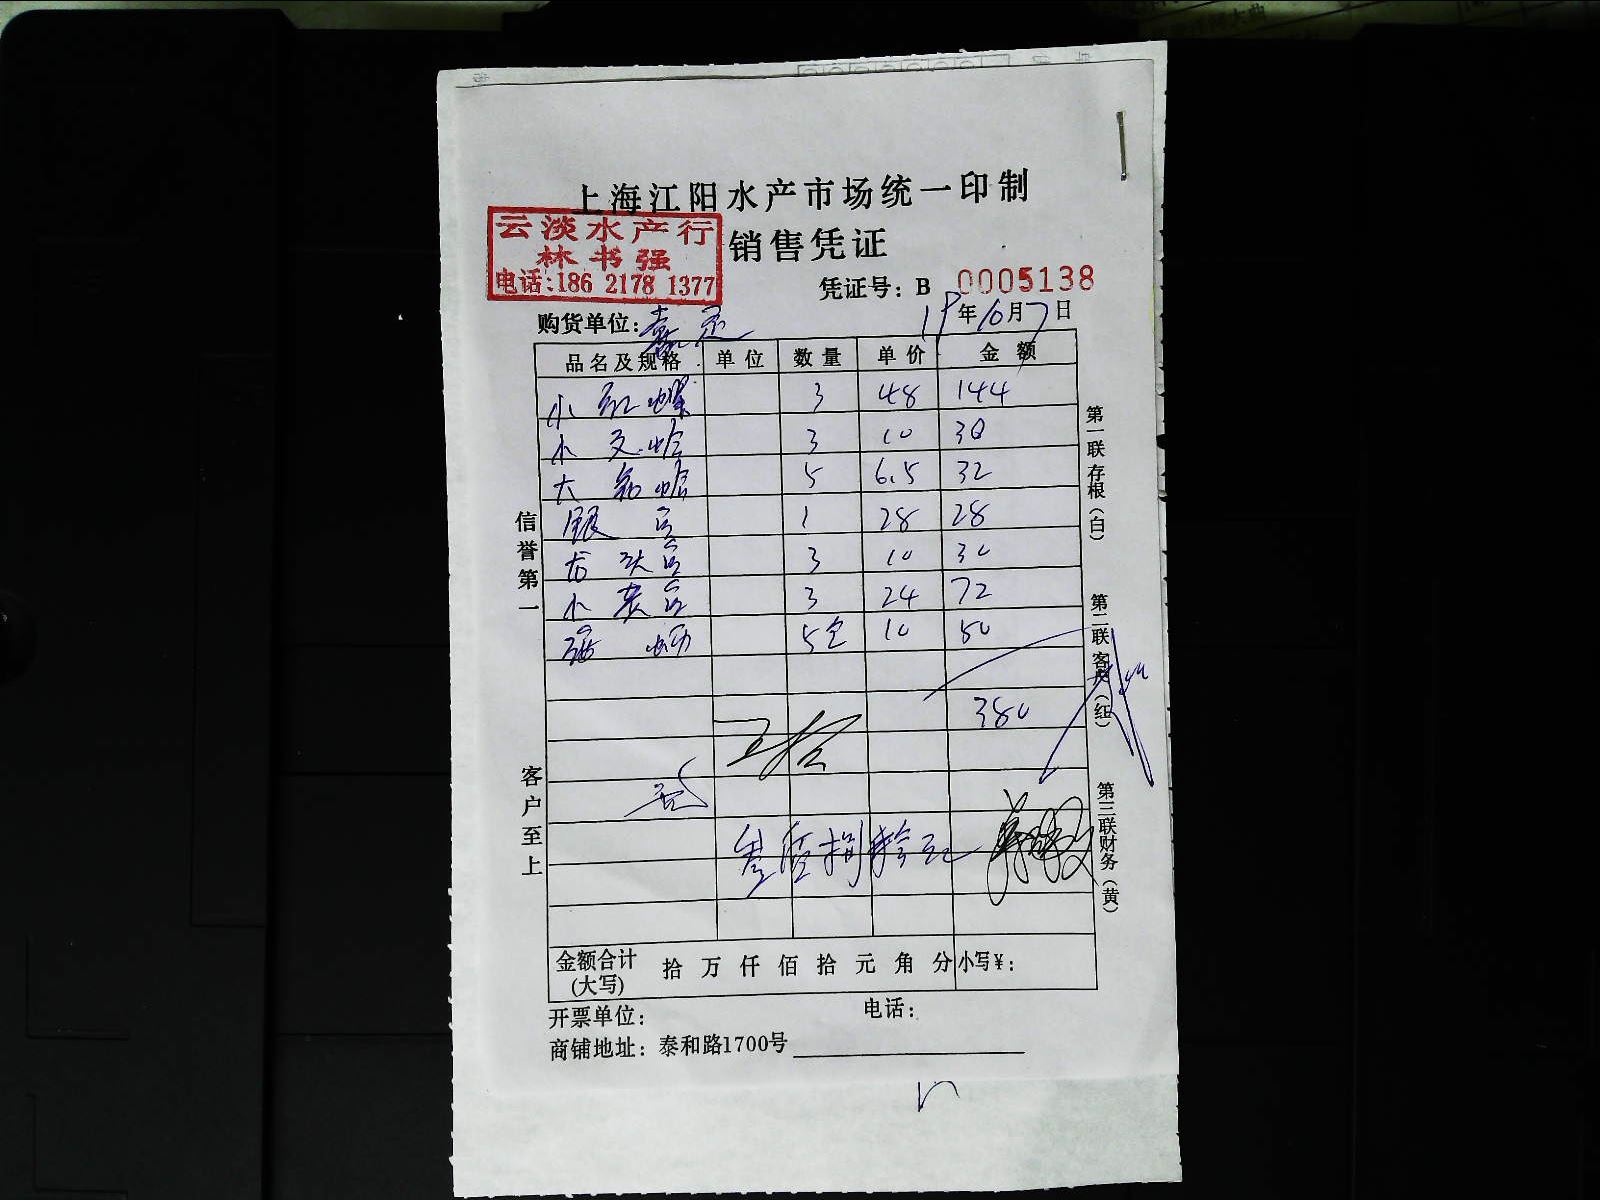 上海江阳水产市场统一印制
云淡水产行
林书强
电话:186 2178 1377
销售凭证
凭证号: B 0005138
购货单位:
年10月7日
品名及规格 单位 数量 单价 金额
小红螺 3 48 144
小文蛤 3 10 30
大 蛤 5 6.5 32
银 1 28 28
龙头 3 10 30
小 3 24 72
5 10 50
380
叁佰捌拾元
信誉第一
客户至上
第一联存根(白)
第二联客户(红)
第三联财务(黄)
金额合计(大写) 拾 万 仟 佰 拾 元 角 分 小写¥:
开票单位: 电话:
商铺地址: 泰和路1700号